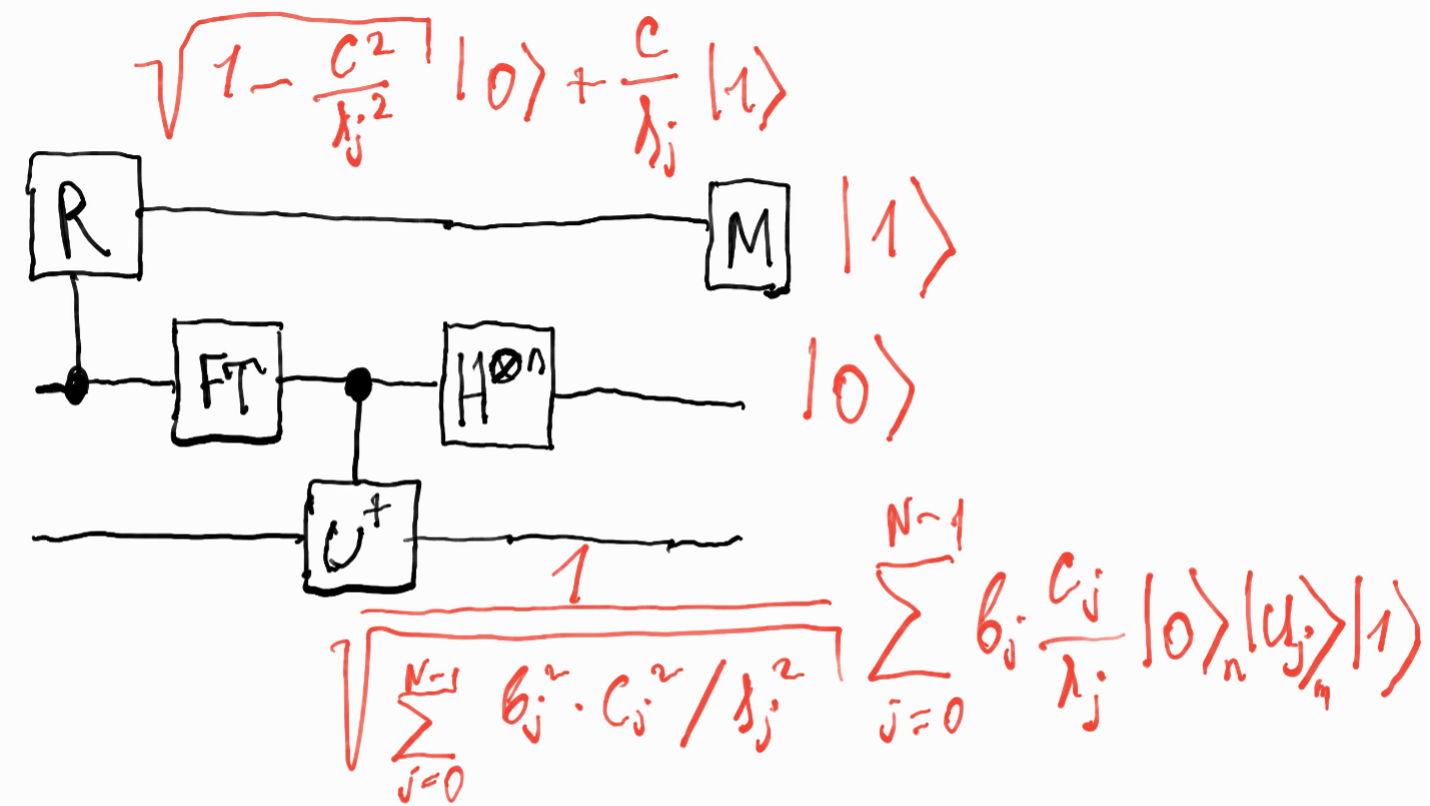 √(1 - C²/λj²) |0⟩ + C/λj |1⟩
R M |1⟩
FT H⊗n |0⟩
U†
1/√(∑_{j=0}^{N-1} bj² · Cj² / λj²) ∑_{j=0}^{N-1} bj Cj/λj |0⟩n |Uj⟩m |1⟩